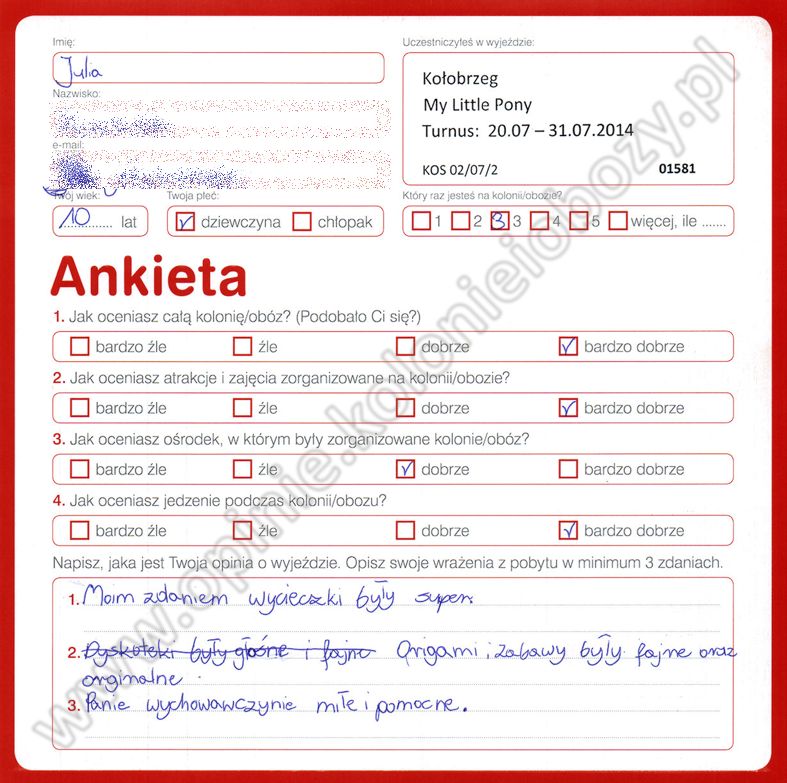 Imię:
Julia
Nazwisko:
e-mail:
Twój wiek:
10 lat
Twoja płeć:
dziewczyna chłopak
Uczestniczyłeś w wyjeździe:
Kołobrzeg
My Little Pony
Turnus: 20.07 – 31.07.2014
KOS 02/07/2 01581
Który raz jesteś na kolonii/obozie?
1 2 3 3 4 5 więcej, ile .......
Ankieta
1. Jak oceniasz całą kolonię/obóz? (Podobało Ci się?)
bardzo źle źle dobrze bardzo dobrze
2. Jak oceniasz atrakcje i zajęcia zorganizowane na kolonii/obozie?
bardzo źle źle dobrze bardzo dobrze
3. Jak oceniasz ośrodek, w którym były zorganizowane kolonie/obóz?
bardzo źle źle dobrze bardzo dobrze
4. Jak oceniasz jedzenie podczas kolonii/obozu?
bardzo źle źle dobrze bardzo dobrze
Napisz, jaka jest Twoja opinia o wyjeździe. Opisz swoje wrażenia z pobytu w minimum 3 zdaniach.
1. Moim zdaniem wycieczki były super.
2. Dyskoteki były głośne i fajne Origami i zabawy były fajne oraz
orginalne.
3. Panie wychowawczynie miłe i pomocne.
www.opinie.kolonieiobozy.pl